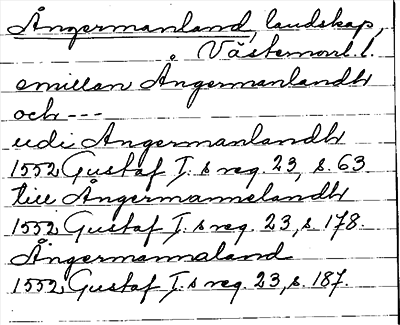 Ångermanland, landskap,
Västernorrl. l.
emillan Ångermanlandh
och ---
udi Angermanlandh
1552 Gustaf I.s reg. 23, s. 63.
till Ångermannelandh
1552 Gustaf I.s reg. 23, s. 178.
Ångermannaland
1552 Gustaf I.s reg. 23, s. 187.